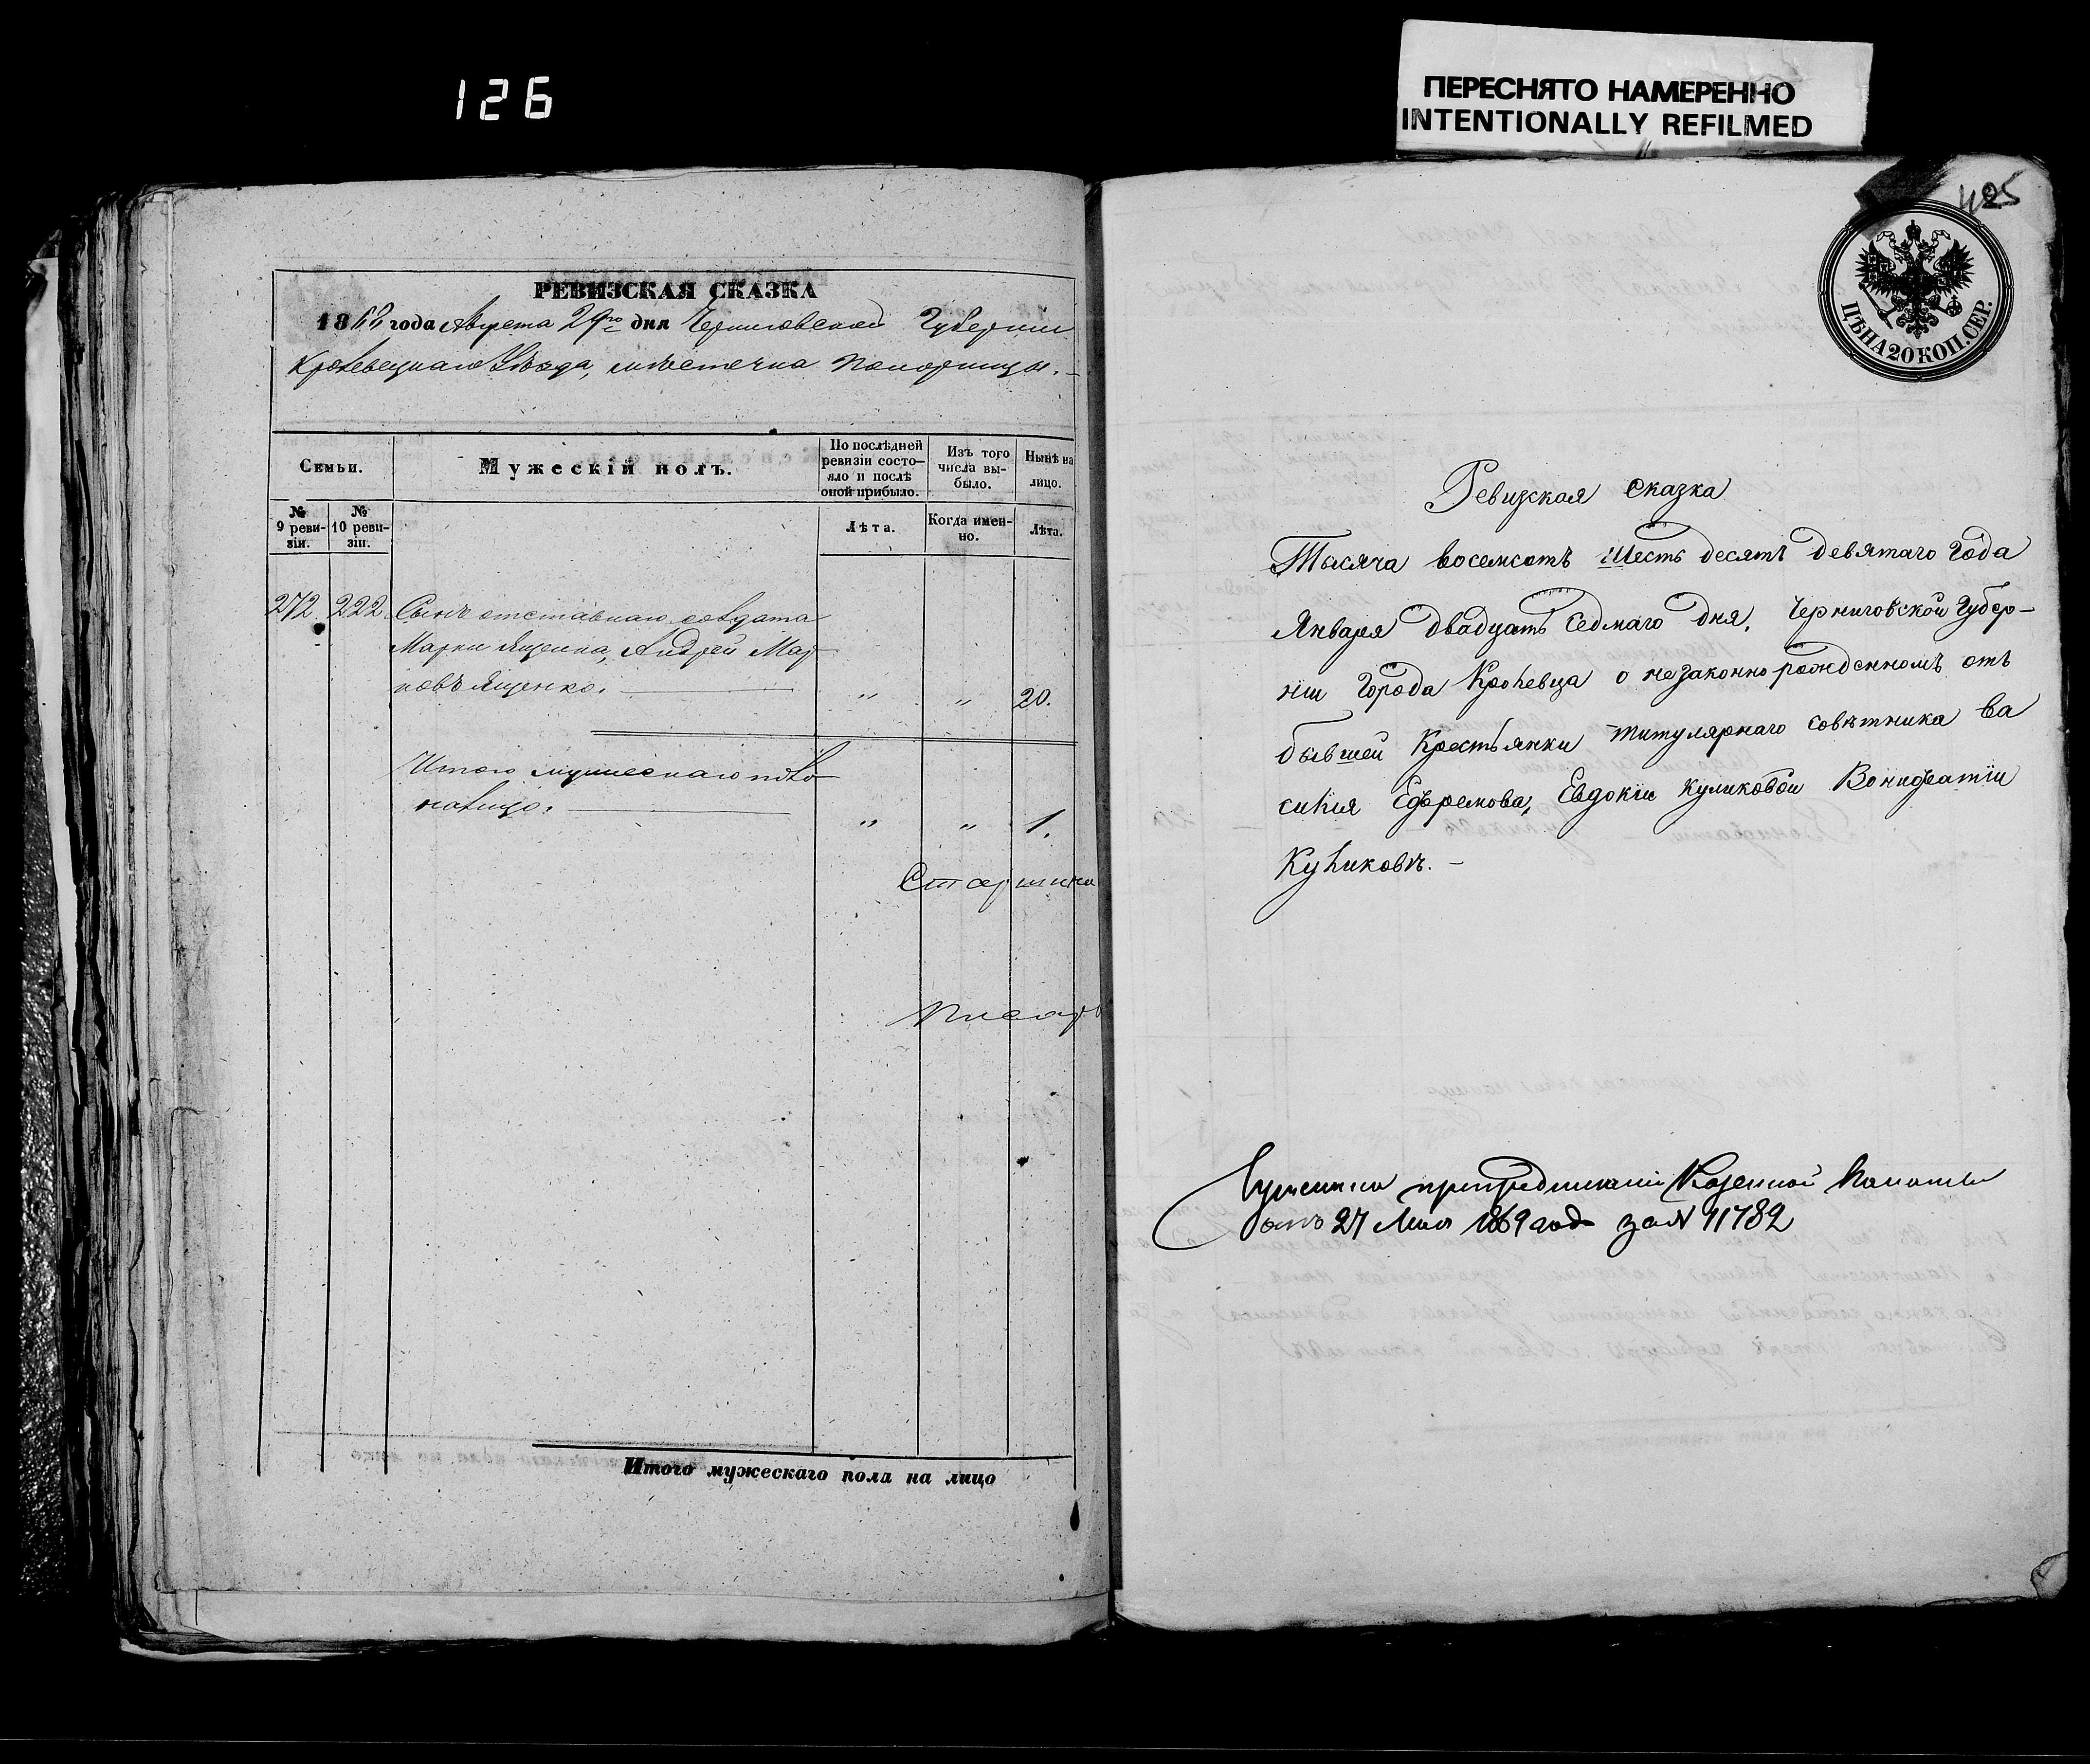 126
ПЕРЕСНЯТО НАМЕРЕННО
INTENTIONALLY REFILMED
РЕВИЗСКАЯ СКАЗКА
18 года Августа 29го дня Черниговской Губернии
Кролевецкаго Уѣзда, мѣстечка Понорницы.
Семьи.
Мужескій полъ.
По послѣдней ревизіи состо-
яло и послѣ оной прибыло.
Изъ того числа вы-
было.
Нынѣ на лицо.
№ 9 реви-
зіи.
№ 10 реви-
зіи.
Лѣта.
Когда имен-
но.
Лѣта.
272 222 Сынъ отставнаго солдата
Марка Ященка, Андрей Мар
ковъ Ященко. " " 20.
Итого мужескаго пола
налицо. " " 1.
Старшина
Писарь
Итого мужескаго пола на лицо
425
ЦѢНА 20 КОП. СЕР.
Ревизская сказка
Тысяча восемсотъ шесть десятъ девятаго года
Января двадцать седмаго дня, Черниговской Губер-
ніи Города Кролевца о незаконно рожденномъ отъ
бывшей Крестьянки титулярнаго совѣтника Ва
силия Ефремова, Евдокіи Куликовой Вонифатіи
Куликовѣ. –
Казенной Палаты
отъ 27 Мая 1869 года за N 11782